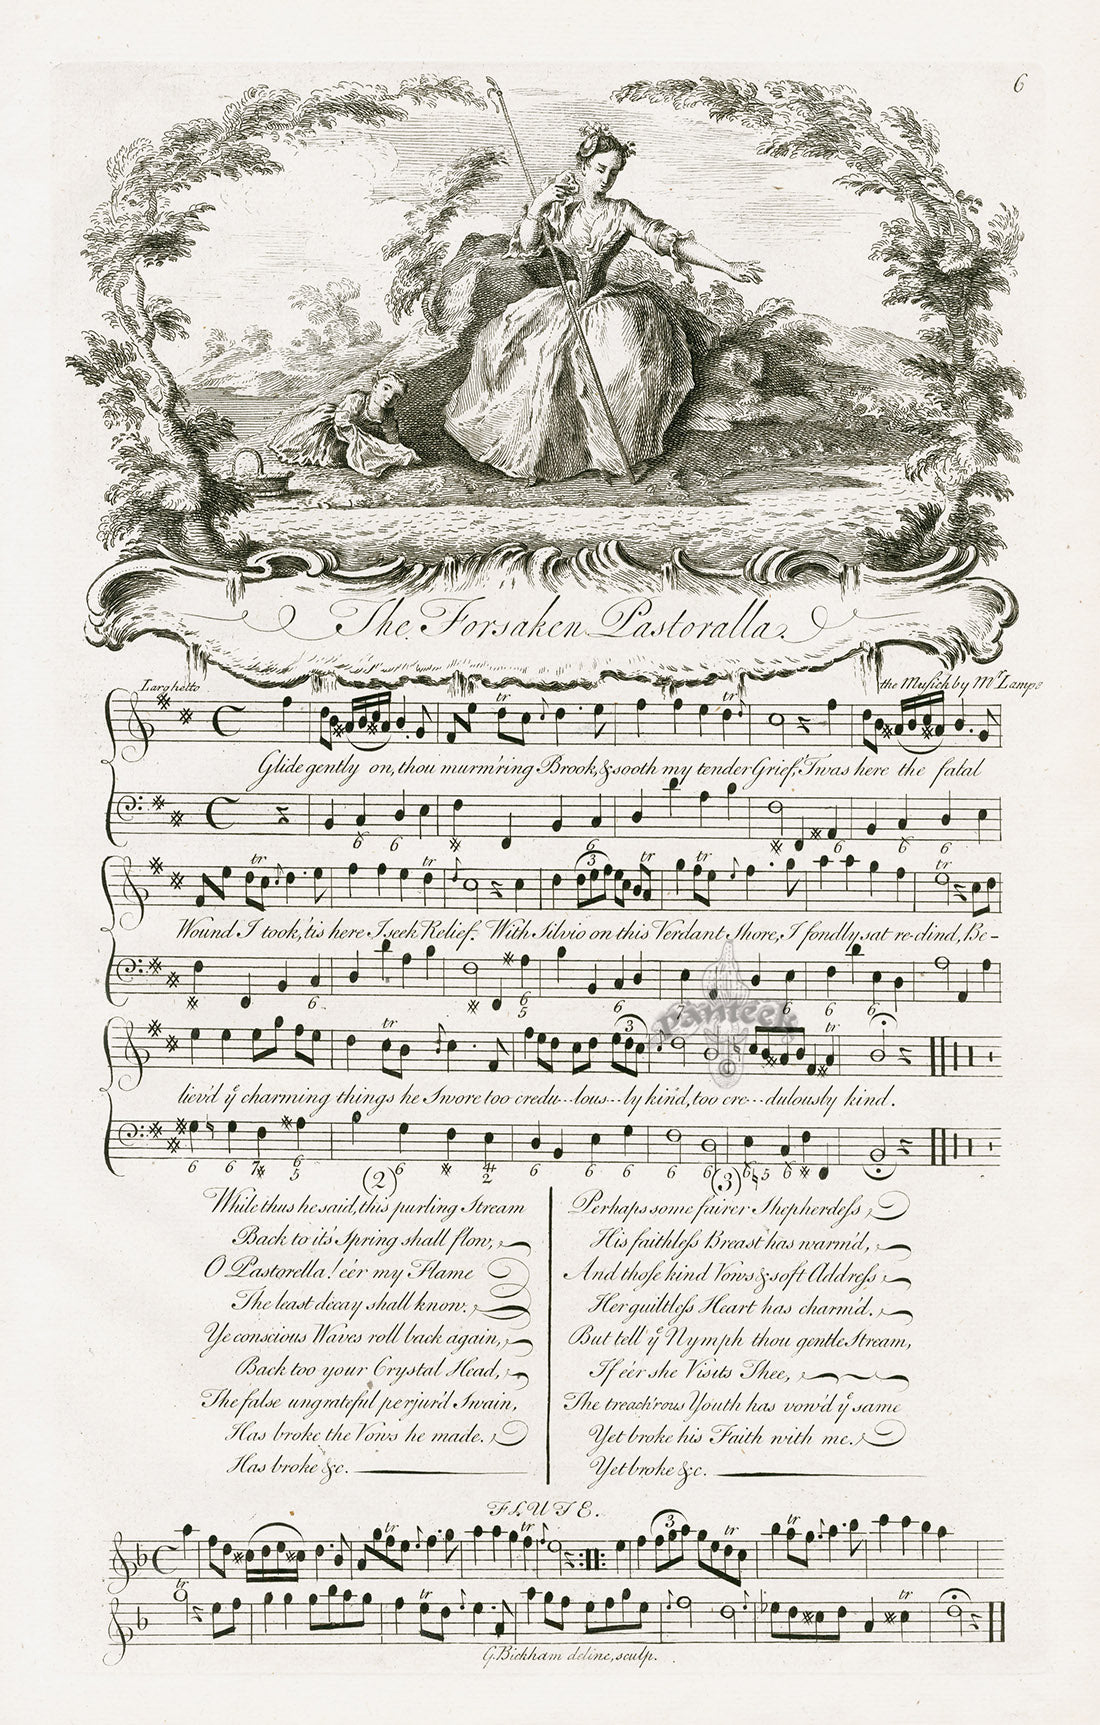 6
The Forsaken Pastoralla.
Larghetto
the Musick by Mr. Lampe
Glide gently on, thou murm'ring Brook, & sooth my tender Grief, 'Twas here the fatal
Wound I took, 'tis here I seek Relief. With Silvio on this Verdant Shore, I fondly sat re-clind, Be-
liev'd ye charming things he Swore too credu--lous--ly kind, too cre--dulously kind.
(2)
While thus he said, this purling Stream
Back to it's Spring shall flow,
O Pastorella! e'er my Flame
The least decay shall know.
Ye conscious Waves roll back again,
Back too your Crystal Head,
The false ungrateful perjur'd Swain,
Has broke the Vows he made.
Has broke &c.
(3)
Perhaps some fairer Shepherdeſs
His faithleſs Breast has warm'd,
And those kind Vows & soft Addreſs
Her guiltleſs Heart has charm'd.
But tell ye Nymph thou gentle Stream,
If e'er she Visits Thee,
The treach'rous Youth has vow'd ye same
Yet broke his Faith with me.
Yet broke &c.
FLUTE.
G. Bickham delinc, sculp.
panteek